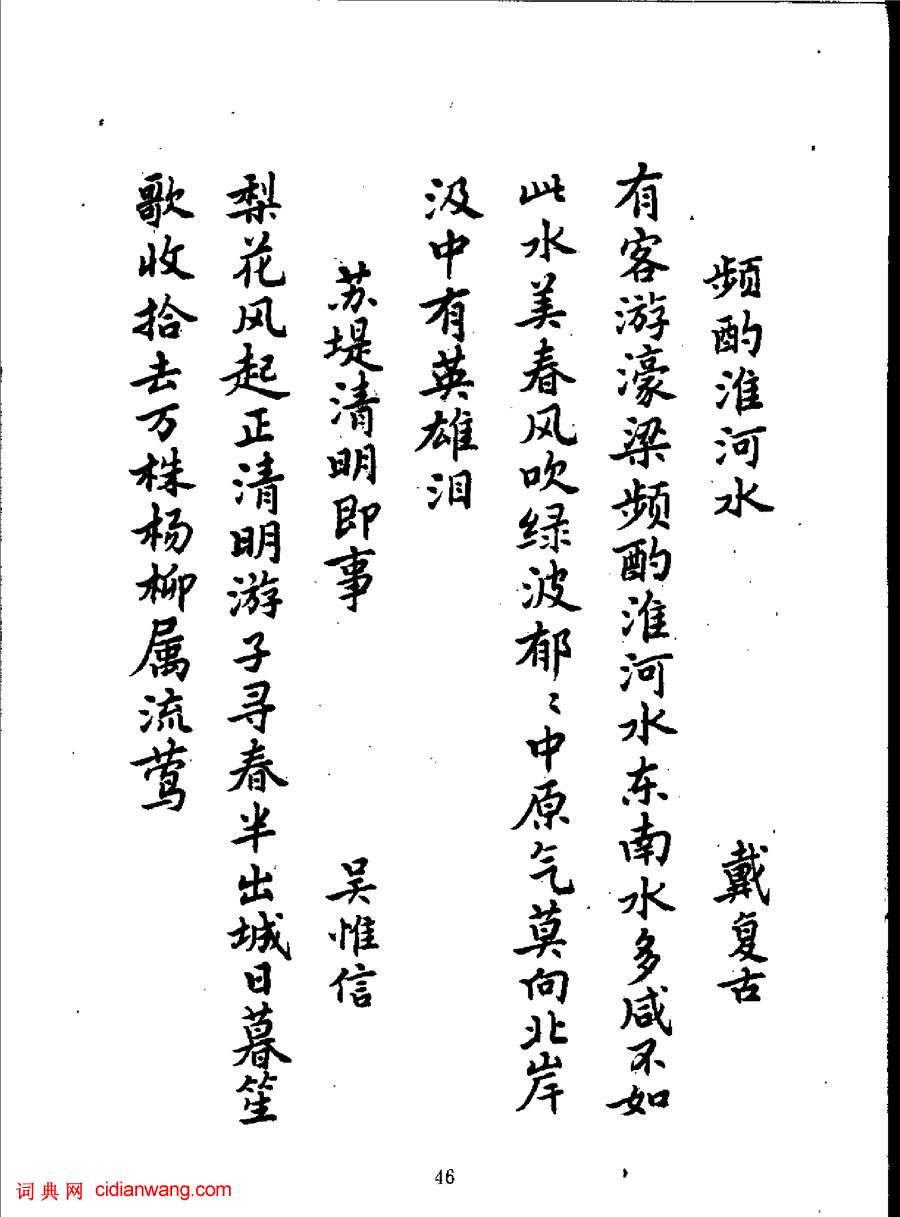 频酌淮河水 戴复古
有客游濠梁频酌淮河水东南水多咸不如
此水美春风吹绿波郁〻中原气莫向北岸
汲中有英雄泪
苏堤清明即事 吴惟信
梨花风起正清明游子寻春半出城日暮笙
歌收拾去万株杨柳属流莺
46
词典网 cidianwang.com